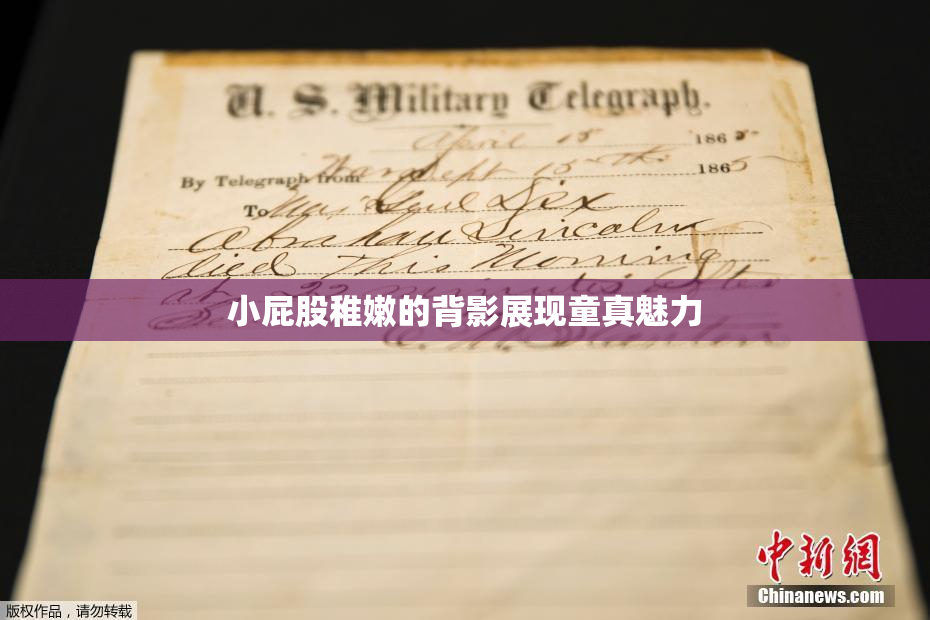 U. S. Military Telegraph.
April 15 1865
By Telegraph from War Dept 15th 1865
To Maj Genl Dix
Abraham Lincoln
died This Morning
at 22 minutes after
小屁股稚嫩的背影展现童真魅力
E. M. Stanton
中新网
Chinanews.com
版权作品，请勿转载